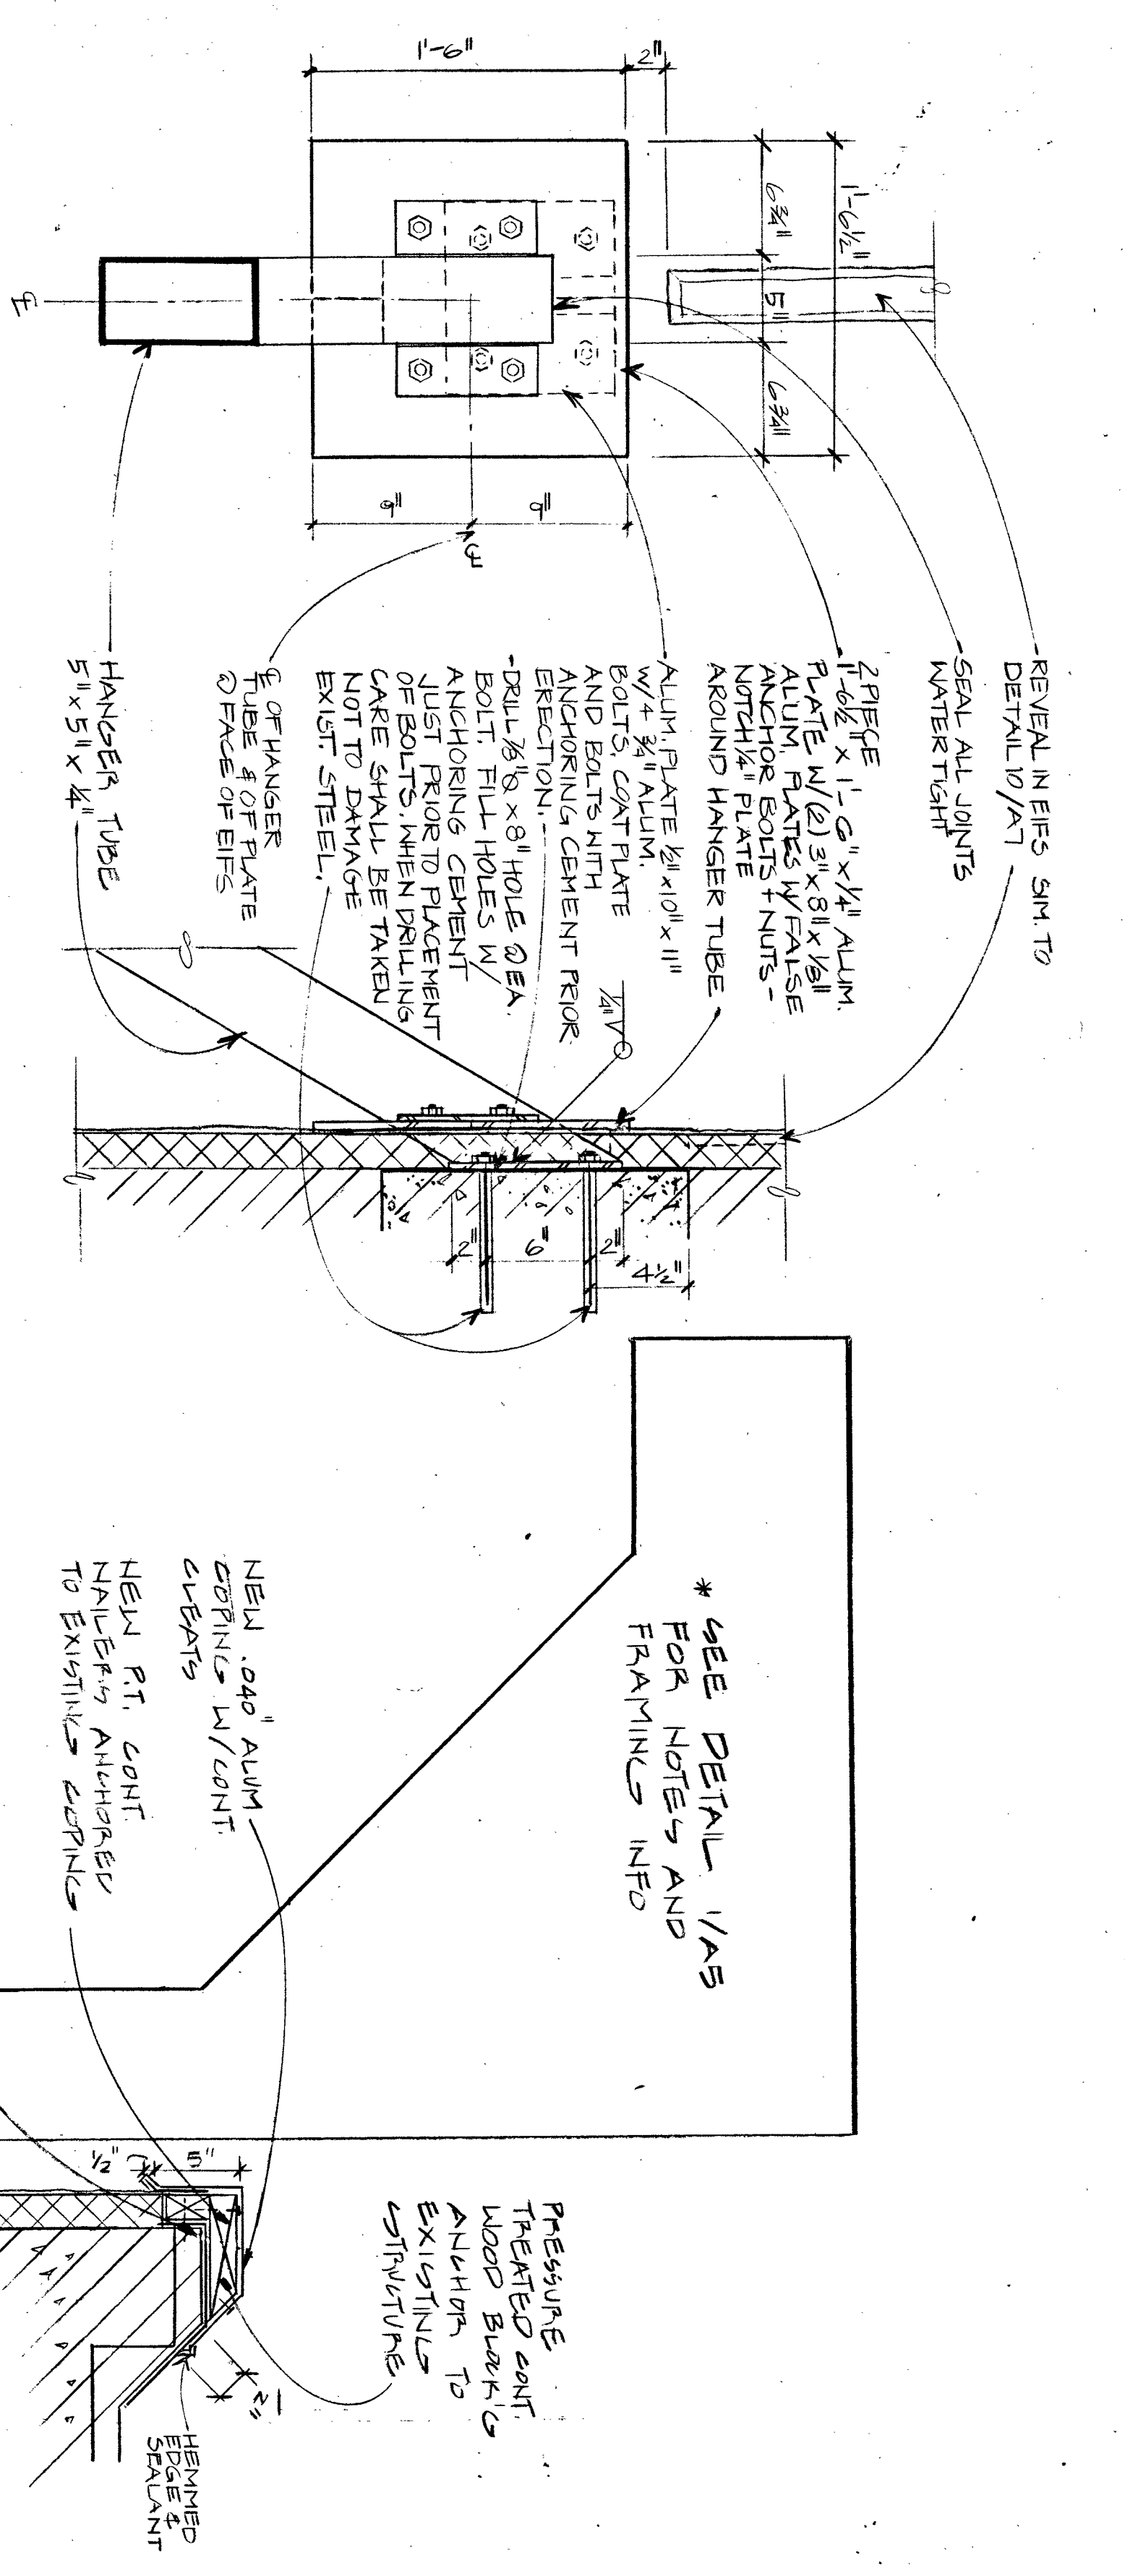 REVEAL IN EIFS SIM. TO
DETAIL 10/A7
SEAL ALL JOINTS
WATERTIGHT
2 PIECE
1'-6½" x 1'-6" x ¼" ALUM.
PLATE W/(2) 3" x 8" x ⅛"
ALUM. PLATES W/FALSE
ANCHOR BOLTS + NUTS -
NOTCH ¼" PLATE
AROUND HANGER TUBE
ALUM. PLATE ½" x 10" x 11"
W/4 ¾" ALUM.
BOLTS. COAT PLATE
AND BOLTS WITH
ANCHORING CEMENT PRIOR
ERECTION.
-DRILL ⅞"Ø x 8" HOLE @ EA.
BOLT. FILL HOLES W/
ANCHORING CEMENT
JUST PRIOR TO PLACEMENT
OF BOLTS. WHEN DRILLING
CARE SHALL BE TAKEN
NOT TO DAMAGE
EXIST. STEEL.
℄ OF HANGER
TUBE & OF PLATE
@ FACE OF EIFS
HANGER TUBE
5" x 5" x ¼"
1'-6"
2"
1'-6½"
6¾"
5"
6¾"
9"
9"
℄
℄
¼"
2"
6"
2"
4½"
* SEE DETAIL 1/A5
FOR NOTES AND
FRAMING INFO
NEW .040" ALUM
COPING W/CONT.
CLEATS
NEW P.T. CONT.
NAILERS ANCHORED
TO EXISTING COPING
PRESSURE
TREATED CONT.
WOOD BLOCK'G
ANCHOR TO
EXISTING
STRUCTURE
½"
5"
HEMMED
EDGE &
SEALANT